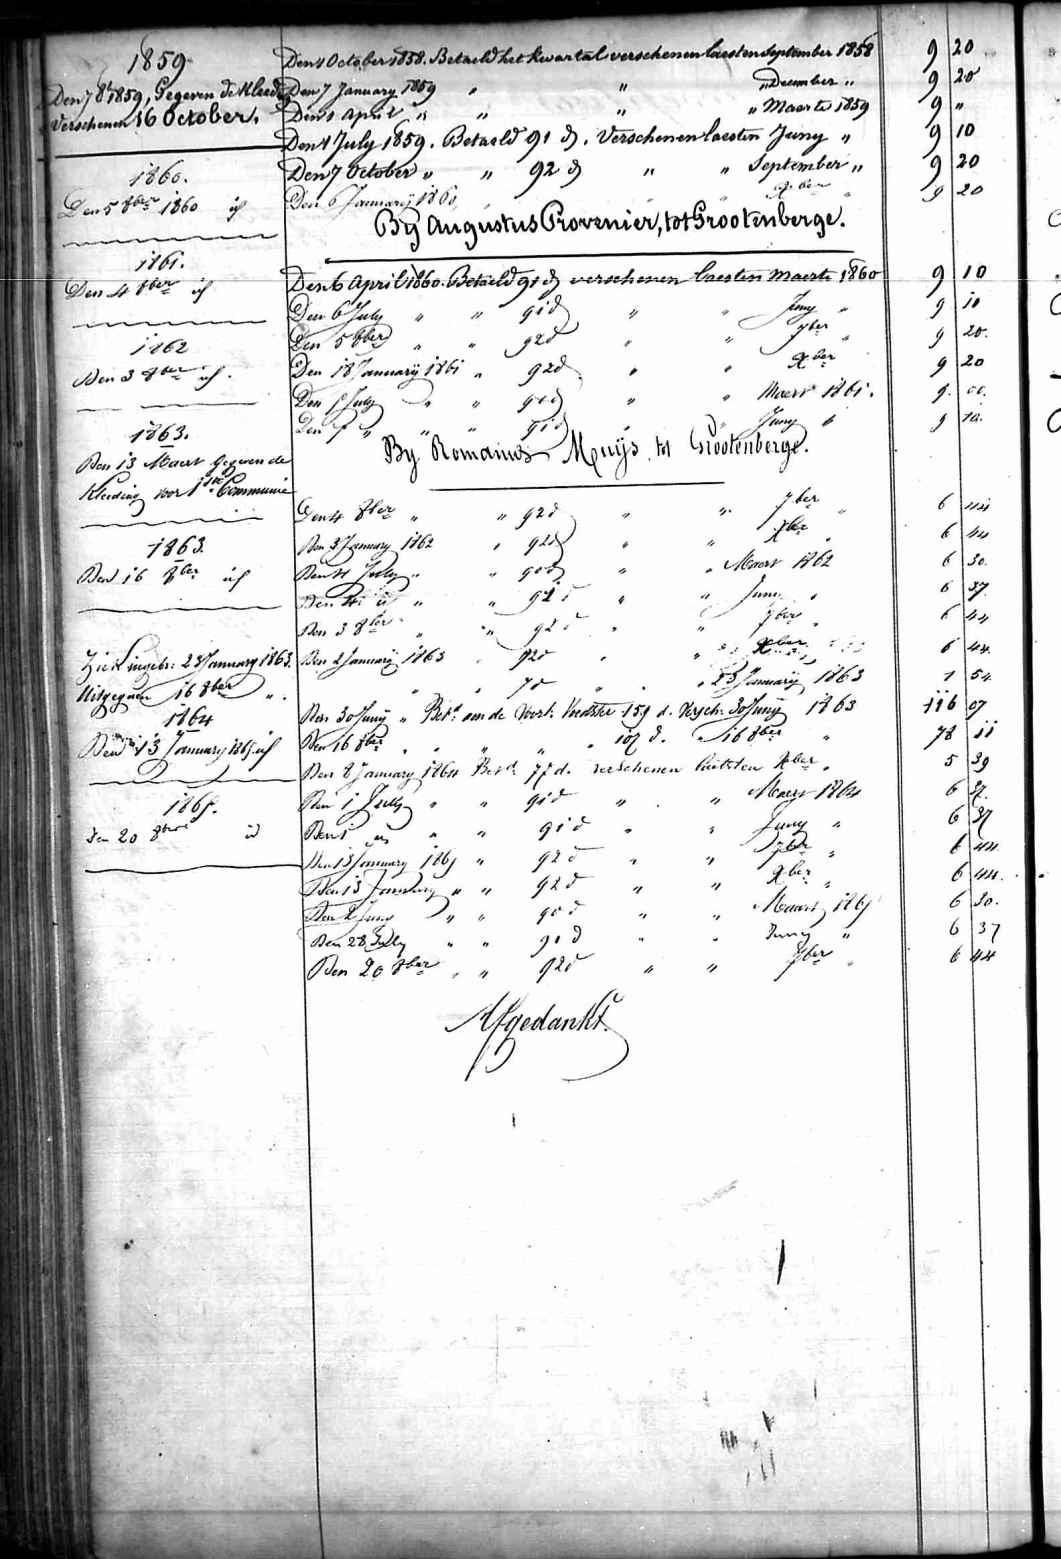 1859
Den 7 8br 1859, Gegeven de Kleed
Verschenen 16 October.
1860.
Den 5 8ber 1860 id
1861.
Den 4 8ber id
1862
Den 3 8ber id.
1863.
Den 13 Maert Gegeven de
Kleeding voor 1ste Communie
1863.
Den 16 8ber id
Ziek ingebr: 23 January 1863.
Uitgegaen 16 8ber "
1864
Den 13 January 1865 id
1865.
Den 20 8ber id
Den 1 October 1858. Betaeld het kwartal verschenen laesten September 1858 9 20
Den 7 January 1859 " " " December " 9 20
Den 1 April " " " " Maerte 1859 9 "
Den 1 July 1859. Betaeld 91 d. Verschenen laesten Juny " 9 10
Den 7 October " " 92 d " " September " 9 20
Den 6 January 1860, " Xber " 9 20
By Augustus Provenier, tot Grootenberge.
Den 6 April 1860. Betaeld 91 d verschenen laesten Maerte 1860 9 10
Den 6 July " " 91 d " " Juny " 9 10
Den 5 8ber " " 92 d " " 7ber " 9 20.
Den 18 January 1861 " 92 d " " Xber 9 20
Den 1 July " " 90 d " Maert 1861. 9. 00.
Den 1 " " " 91 d " Juny " 9 10.
By Romainus Muijs tot Grootenberge.
Den 4 8ber " " 92 d " " 7ber " 6 44
Den 3 January 1862 " 92 d " " Xber " 6 44
Den 4 July " " 90 d " " Maert 1862 6 30.
Den 4 id " " 91 d " " Juny " 6 37.
Den 3 8ber " " 92 d " " 7ber " 6 44
Den 2 January 1863 " 92 d " " Xber 6 44.
" " 7 d " " 23 January 1863 1 54
Den 30 Juny " Bet.d aen de Voorl. 159 d. Versch. 30 Juny 1863 116 07
Den 16 8ber " " " " 107 d. " 16 8ber " 78 11
Den 8 January 1864 Bet.d 77 d. verschenen laetsten Xber " 5 39
Den 1 July " " 91 d " " Maert 1864 6 37.
Den 1 id " " 91 d " " Juny " 6 37
Den 13 January 1865 " 92 d " " 7ber " 6 44
Den 13 January " " 92 d " " Xber " 6 44.
Den 2 Juny " " 90 d " " Maart 1865 6 30.
Den 28 July " " 91 d " " Juny " 6 37
Den 20 8ber " " 92 d " " 7ber " 6 44
Afgedankt.